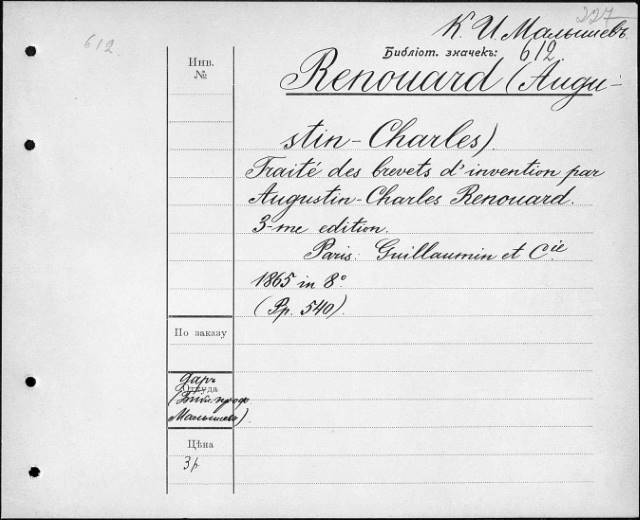 227
К. И. Малышевъ
612
Библіот. значекъ: 612
Инв.
№
Renouard (Augu-
stin-Charles).
Traité des brevets d'invention par
Augustin-Charles Renouard.
3-me edition.
Paris: Guillaumin et Cie
1865 in 8°
(Pp. 540).
По заказу
даръ
Откуда
(Библ. проф.
Малышева)
Цѣна
3р